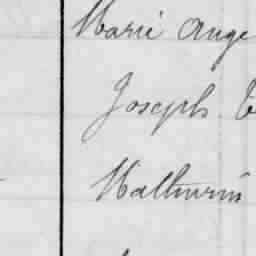 Marie Ange
Joseph
Mathurin